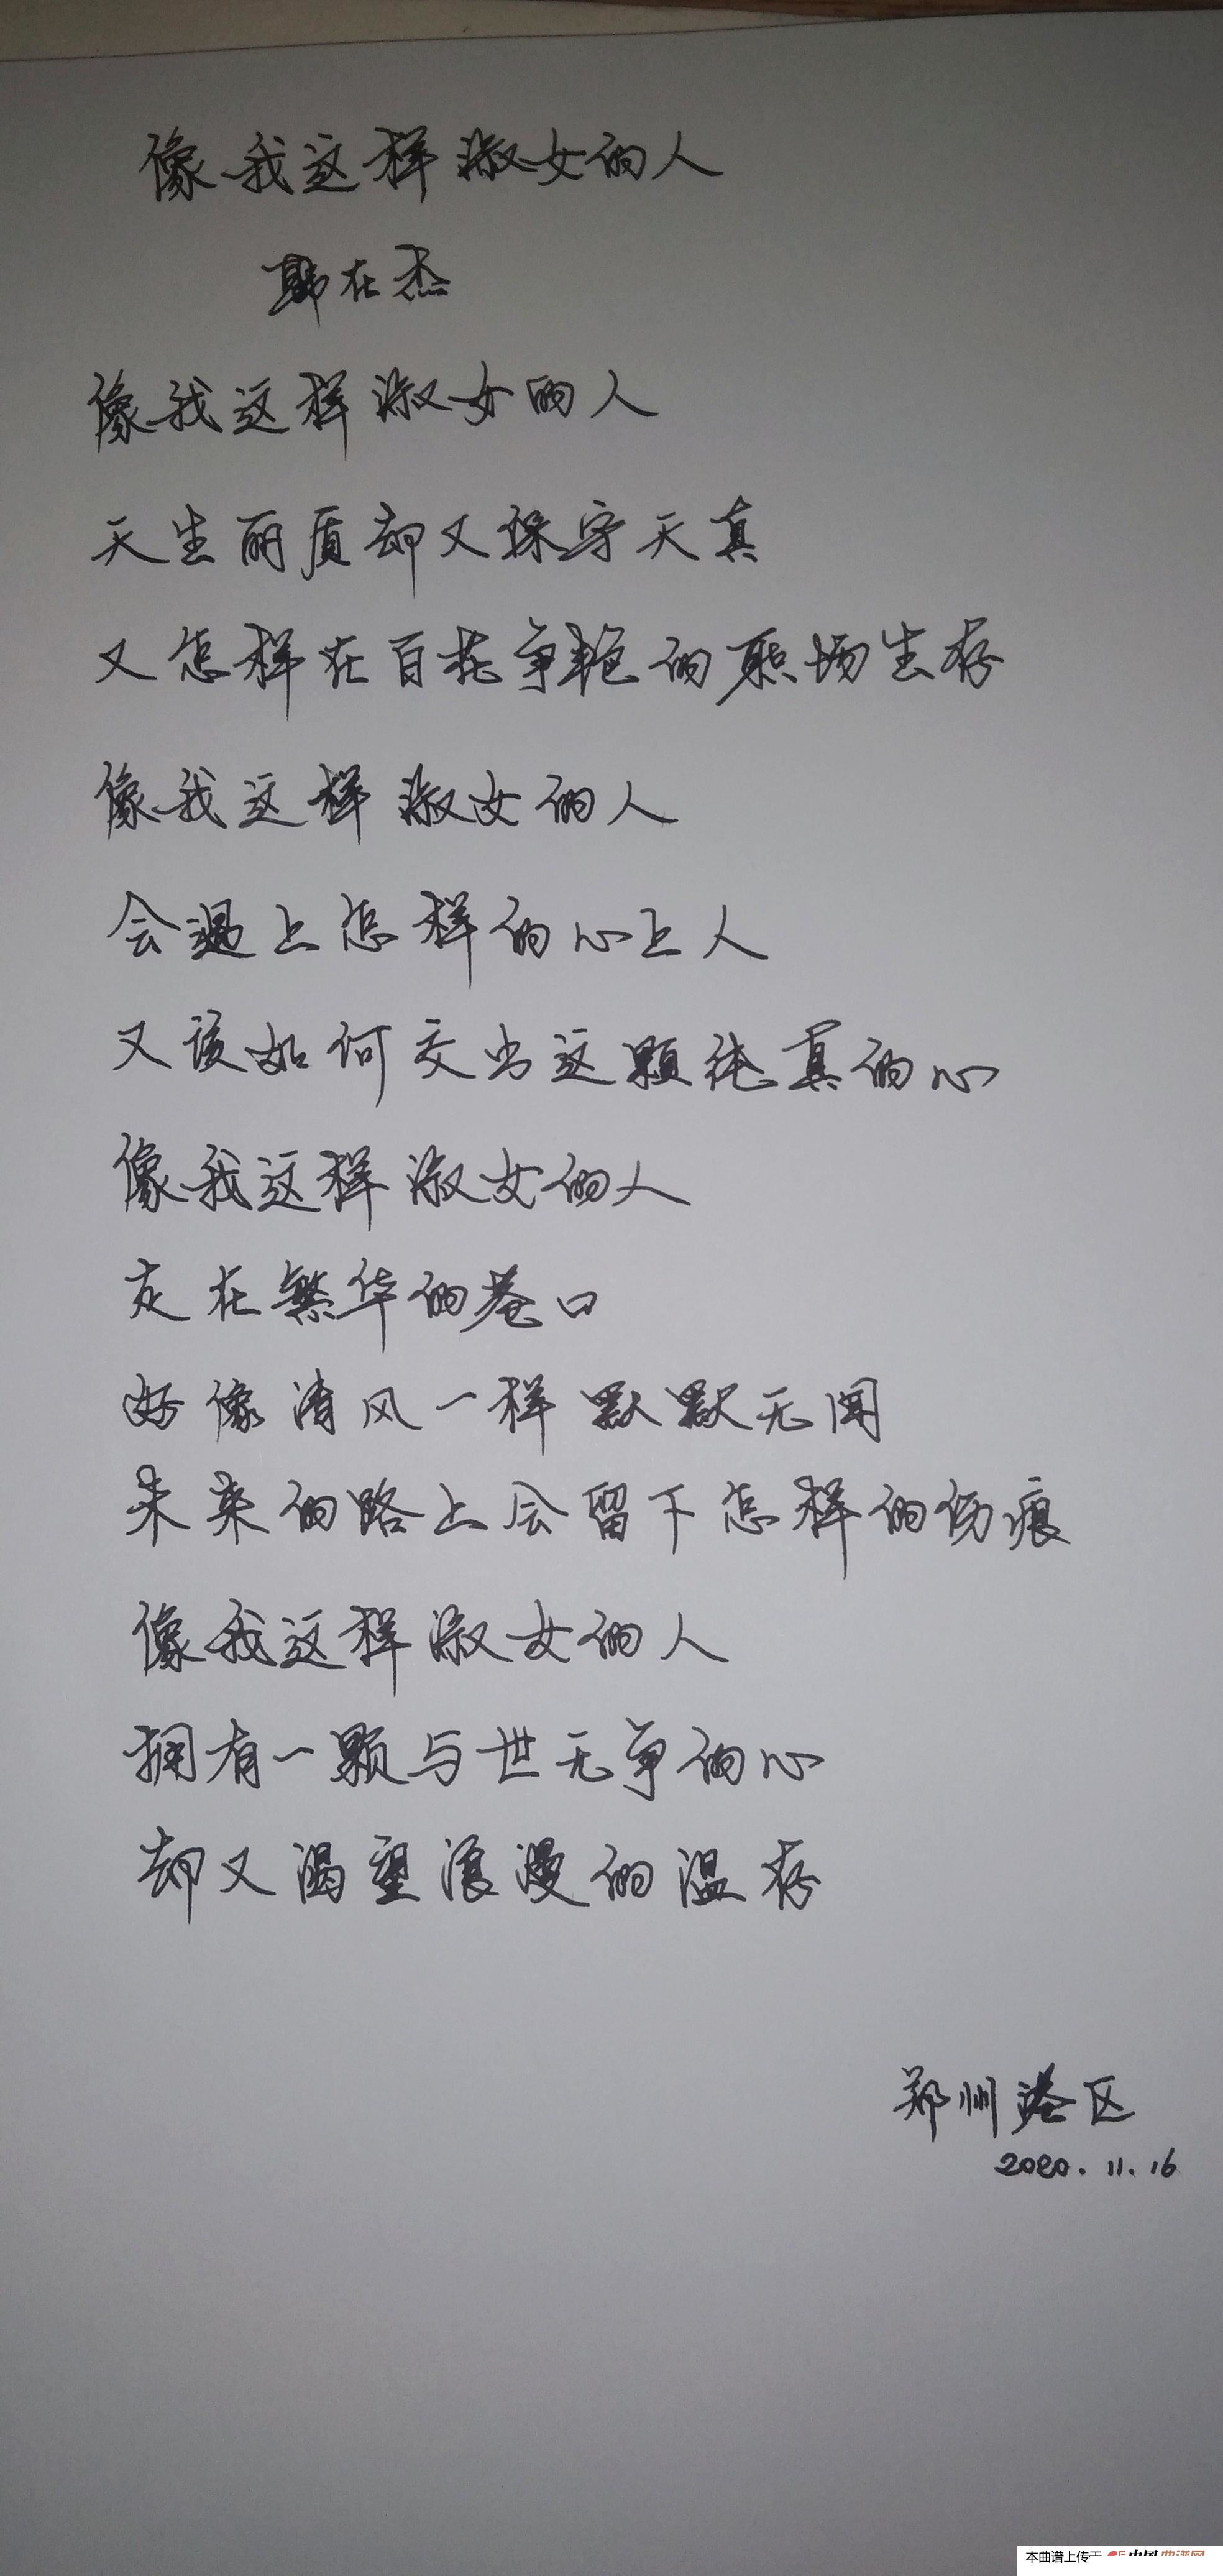 像我这样淑女的人
韩在杰
像我这样淑女的人
天生丽质却又保守天真
又怎样在百花争艳的职场生存
像我这样淑女的人
会遇上怎样的心上人
又该如何交出这颗纯真的心
像我这样淑女的人
走在繁华的巷口
好像清风一样默默无闻
未来的路上会留下怎样的伤痕
像我这样淑女的人
拥有一颗与世无争的心
却又渴望浪漫的温存
郑州港区
2020.11.16
本曲谱上传于